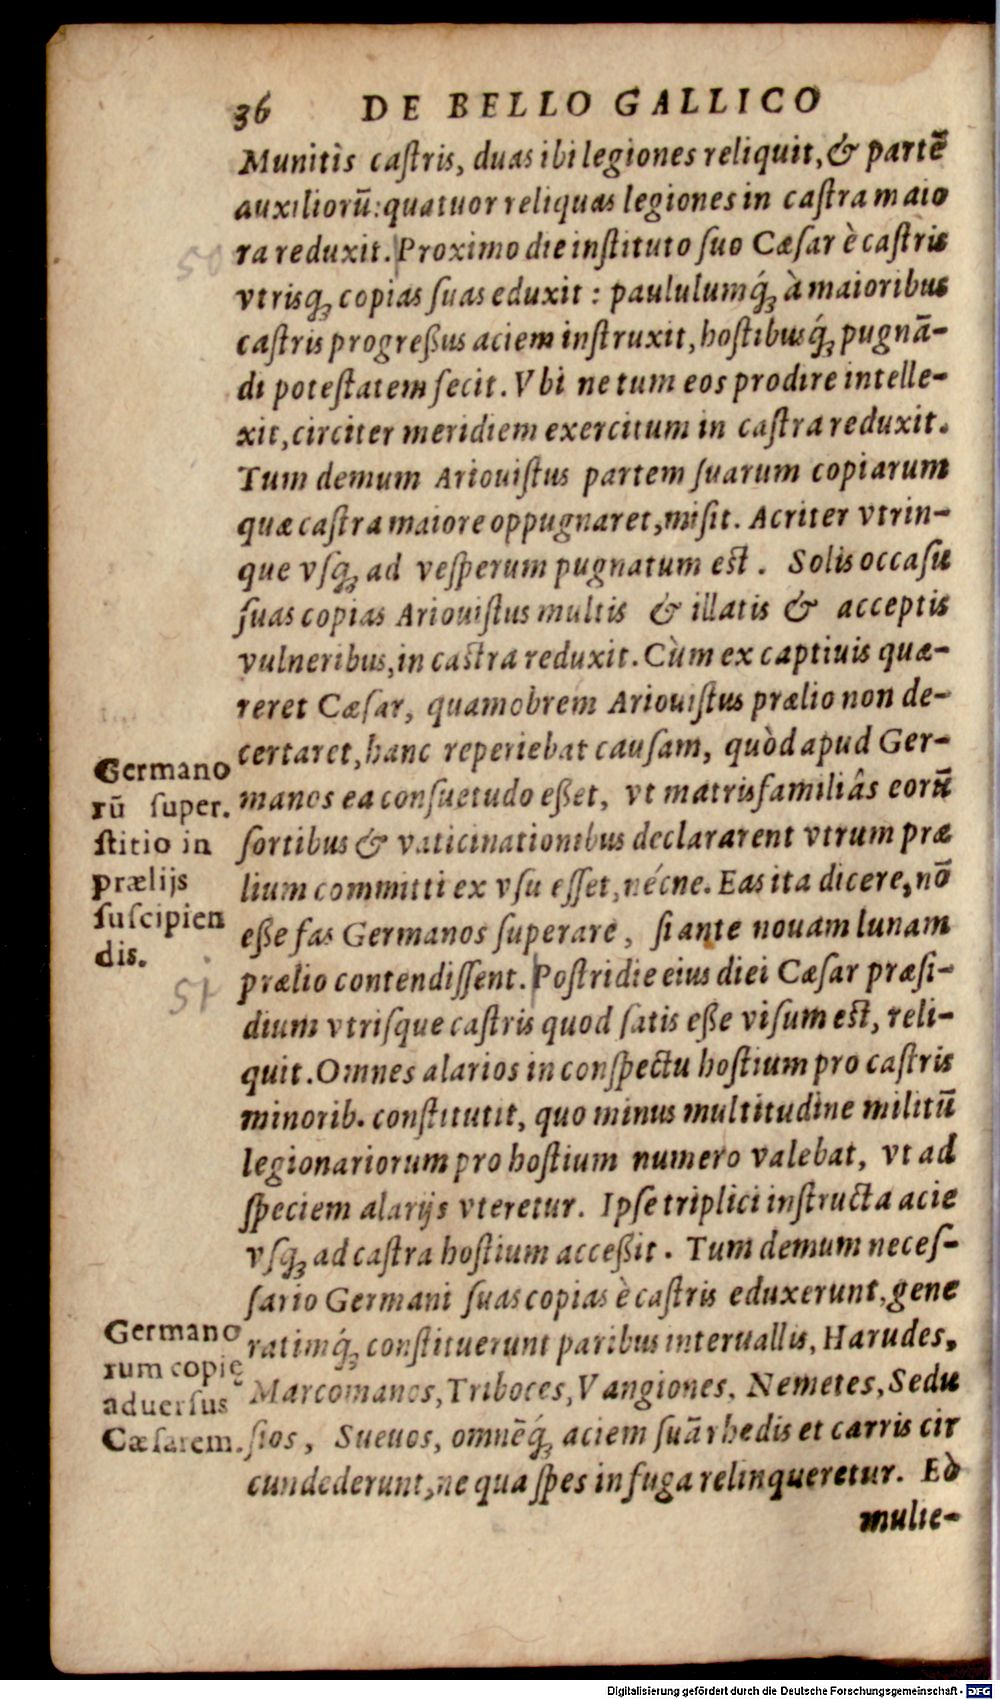 36 DE BELLO GALLICO
Munitis caſtris, duas ibi legiones reliquit, & partē
auxiliorū: quatuor reliquas legiones in caſtra maio
ra reduxit. Proximo die inſtituto ſuo Cæſar è caſtris
50
vtrisq́; copias ſuas eduxit : paululumq́; à maioribus
caſtris progreßus aciem inſtruxit, hoſtibusq́; pugnā-
di poteſtatem fecit. Vbi ne tum eos prodire intelle-
xit, circiter meridiem exercitum in caſtra reduxit.
Tum demum Ariouiſtus partem ſuarum copiarum
quæ caſtra maiore oppugnaret, miſit. Acriter vtrin-
que vſq; ad veſperum pugnatum eſt. Solis occaſu
ſuas copias Ariouiſtus multis & illatis & acceptis
vulneribus, in caſtra reduxit. Cùm ex captiuis quæ-
reret Cæſar, quamobrem Ariouiſtus prælio non de-
certaret, hanc reperiebat cauſam, quòd apud Ger-
manos ea conſuetudo eßet, vt matrisfamiliâs eorū
ſortibus & vaticinationibus declararent vtrum præ
lium committi ex vſu eſſet, nécne. Eas ita dicere, nō
eße fas Germanos ſuperare, ſi ante nouam lunam
prælio contendiſſent. Poſtridie eius diei Cæſar præſi-
dium vtriſque caſtris quod ſatis eße viſum eſt, reli-
quit. Omnes alarios in conſpectu hoſtium pro caſtris
minorib. conſtitutit, quo minus multitudine militū
legionariorum pro hoſtium numero valebat, vt ad
ſpeciem alarijs vteretur. Ipſe triplici inſtructa acie
vſq; ad caſtra hoſtium acceßit. Tum demum neceſ-
ſario Germani ſuas copias è caſtris eduxerunt, gene
ratimq́; conſtituerunt paribus interuallis, Harudes,
Marcomanos, Triboces, Vangiones, Nemetes, Sedu
ſios, Sueuos, omnēq́; aciem ſuā rhedis et carris cir
cundederunt, ne qua ſpes in fuga relinqueretur. Eò
mulie-
Germano
rū ſuper.
ſtitio in
prælijs
ſuſcipien
dis.
51
Germano
rum copię
aduerſus
Cæſarem.
Digitalisierung gefördert durch die Deutsche Forschungsgemeinschaft - DFG